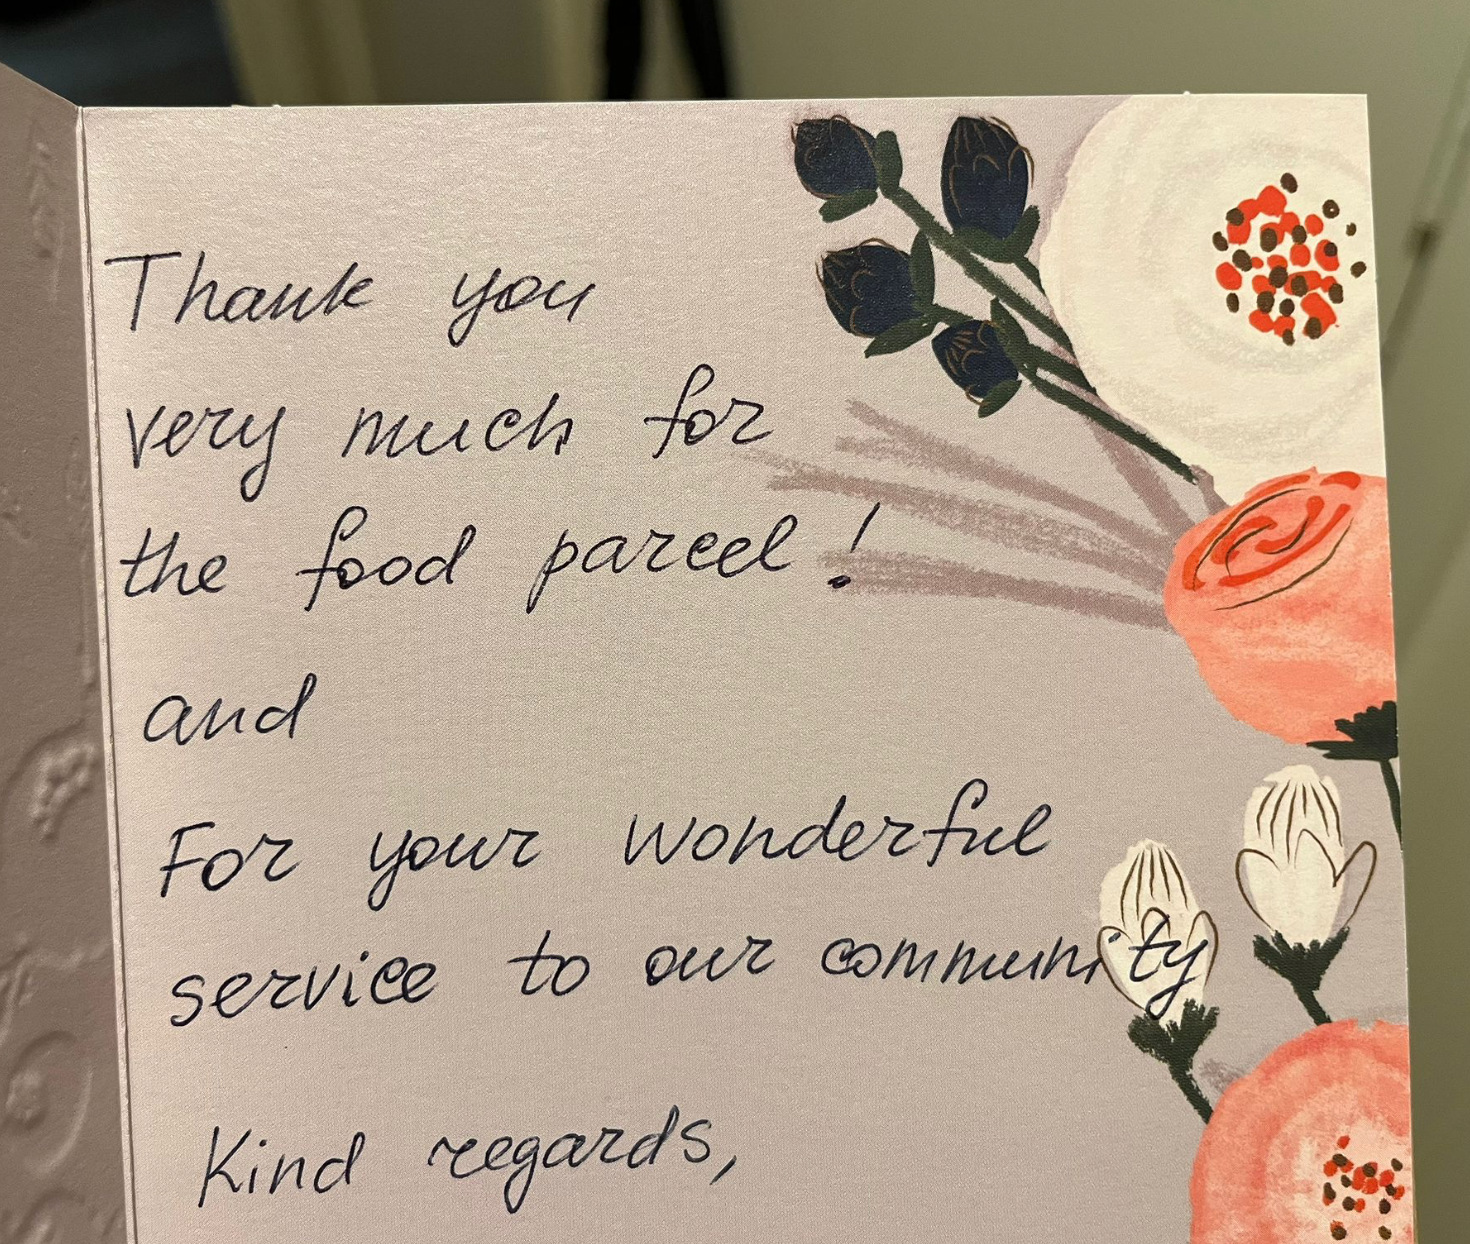 Thank you
very much for
the food parcel!
and
For your wonderful
service to our community
Kind regards,